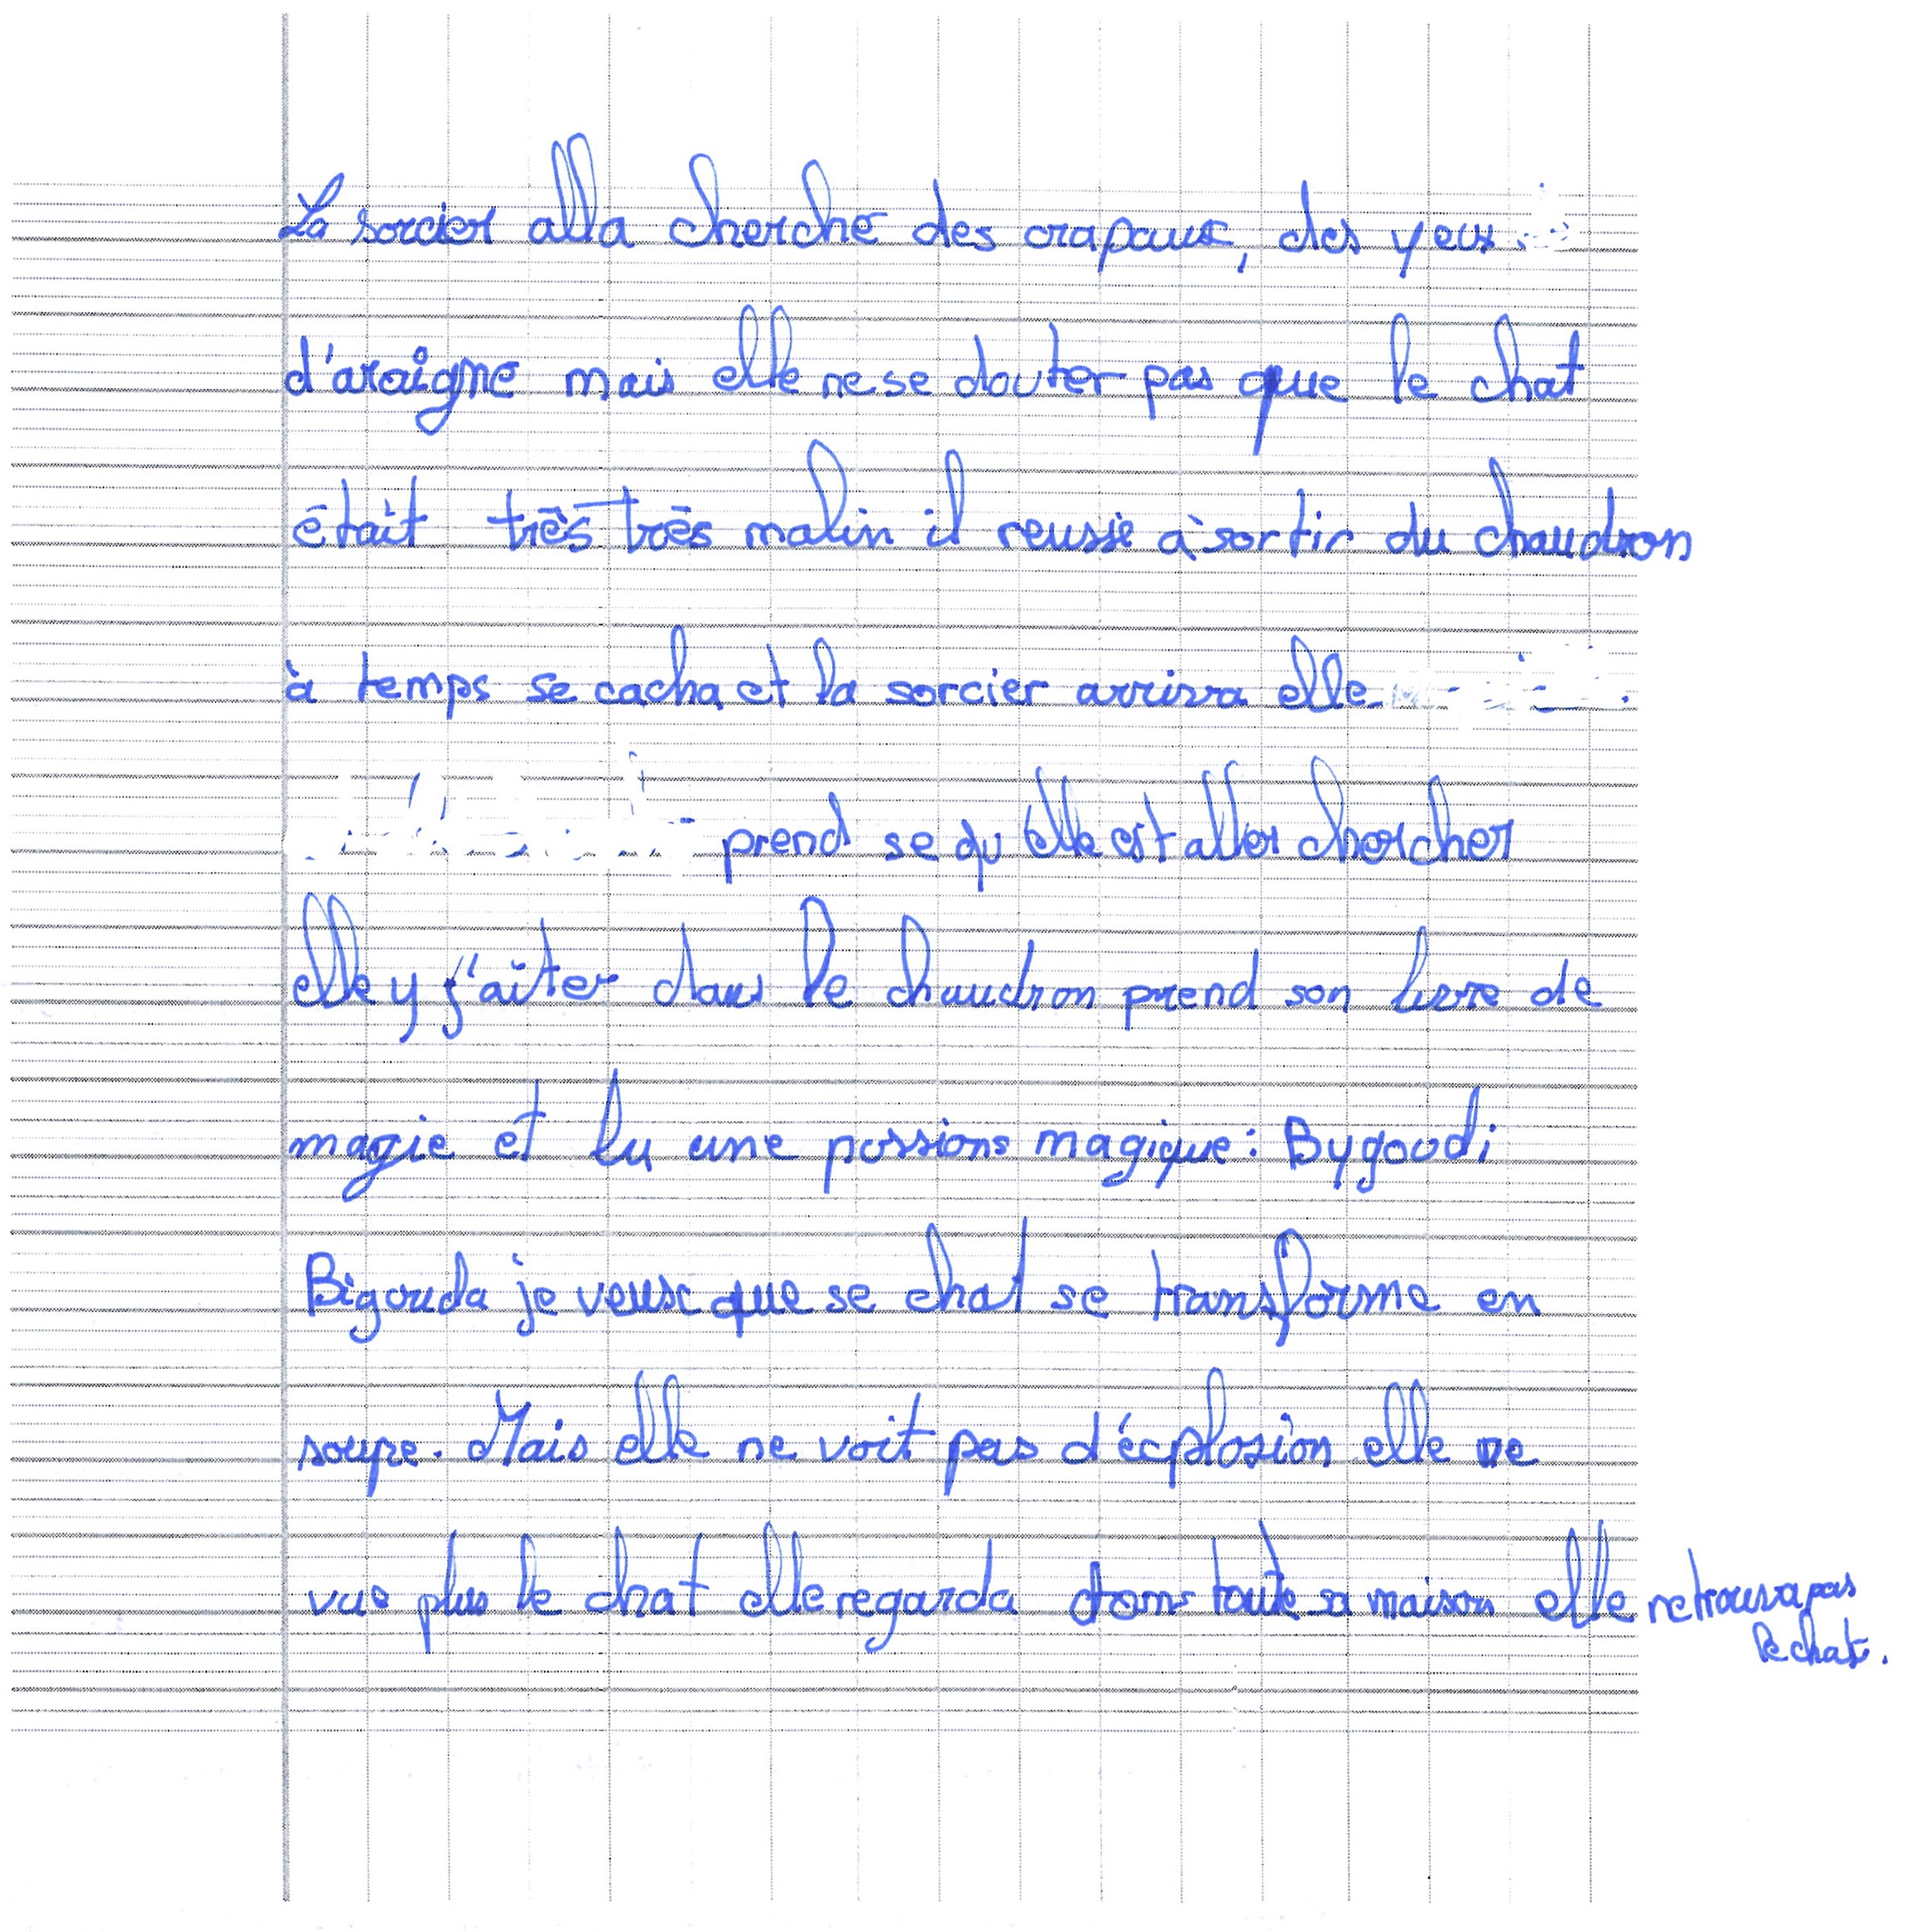 La sorcier alla cherché des crapaux, des yeux
d'araigne mais elle ne se douter pas que le chat
était très très malin il reussie à sortir du chaudron
à temps se cacha et la sorcier arriva elle
prend se qu'elle est aller chercher
elle y j'aiter dans le chaudron prend son livre de
magie et lu une possions magique : Bygoudi
Bigouda je veux que se chat se transforme en
soupe. Mais elle ne voit pas d'écplosion elle ne
vue plus le chat elle regarda dans toute sa maison elle retrouva pas
le chat.